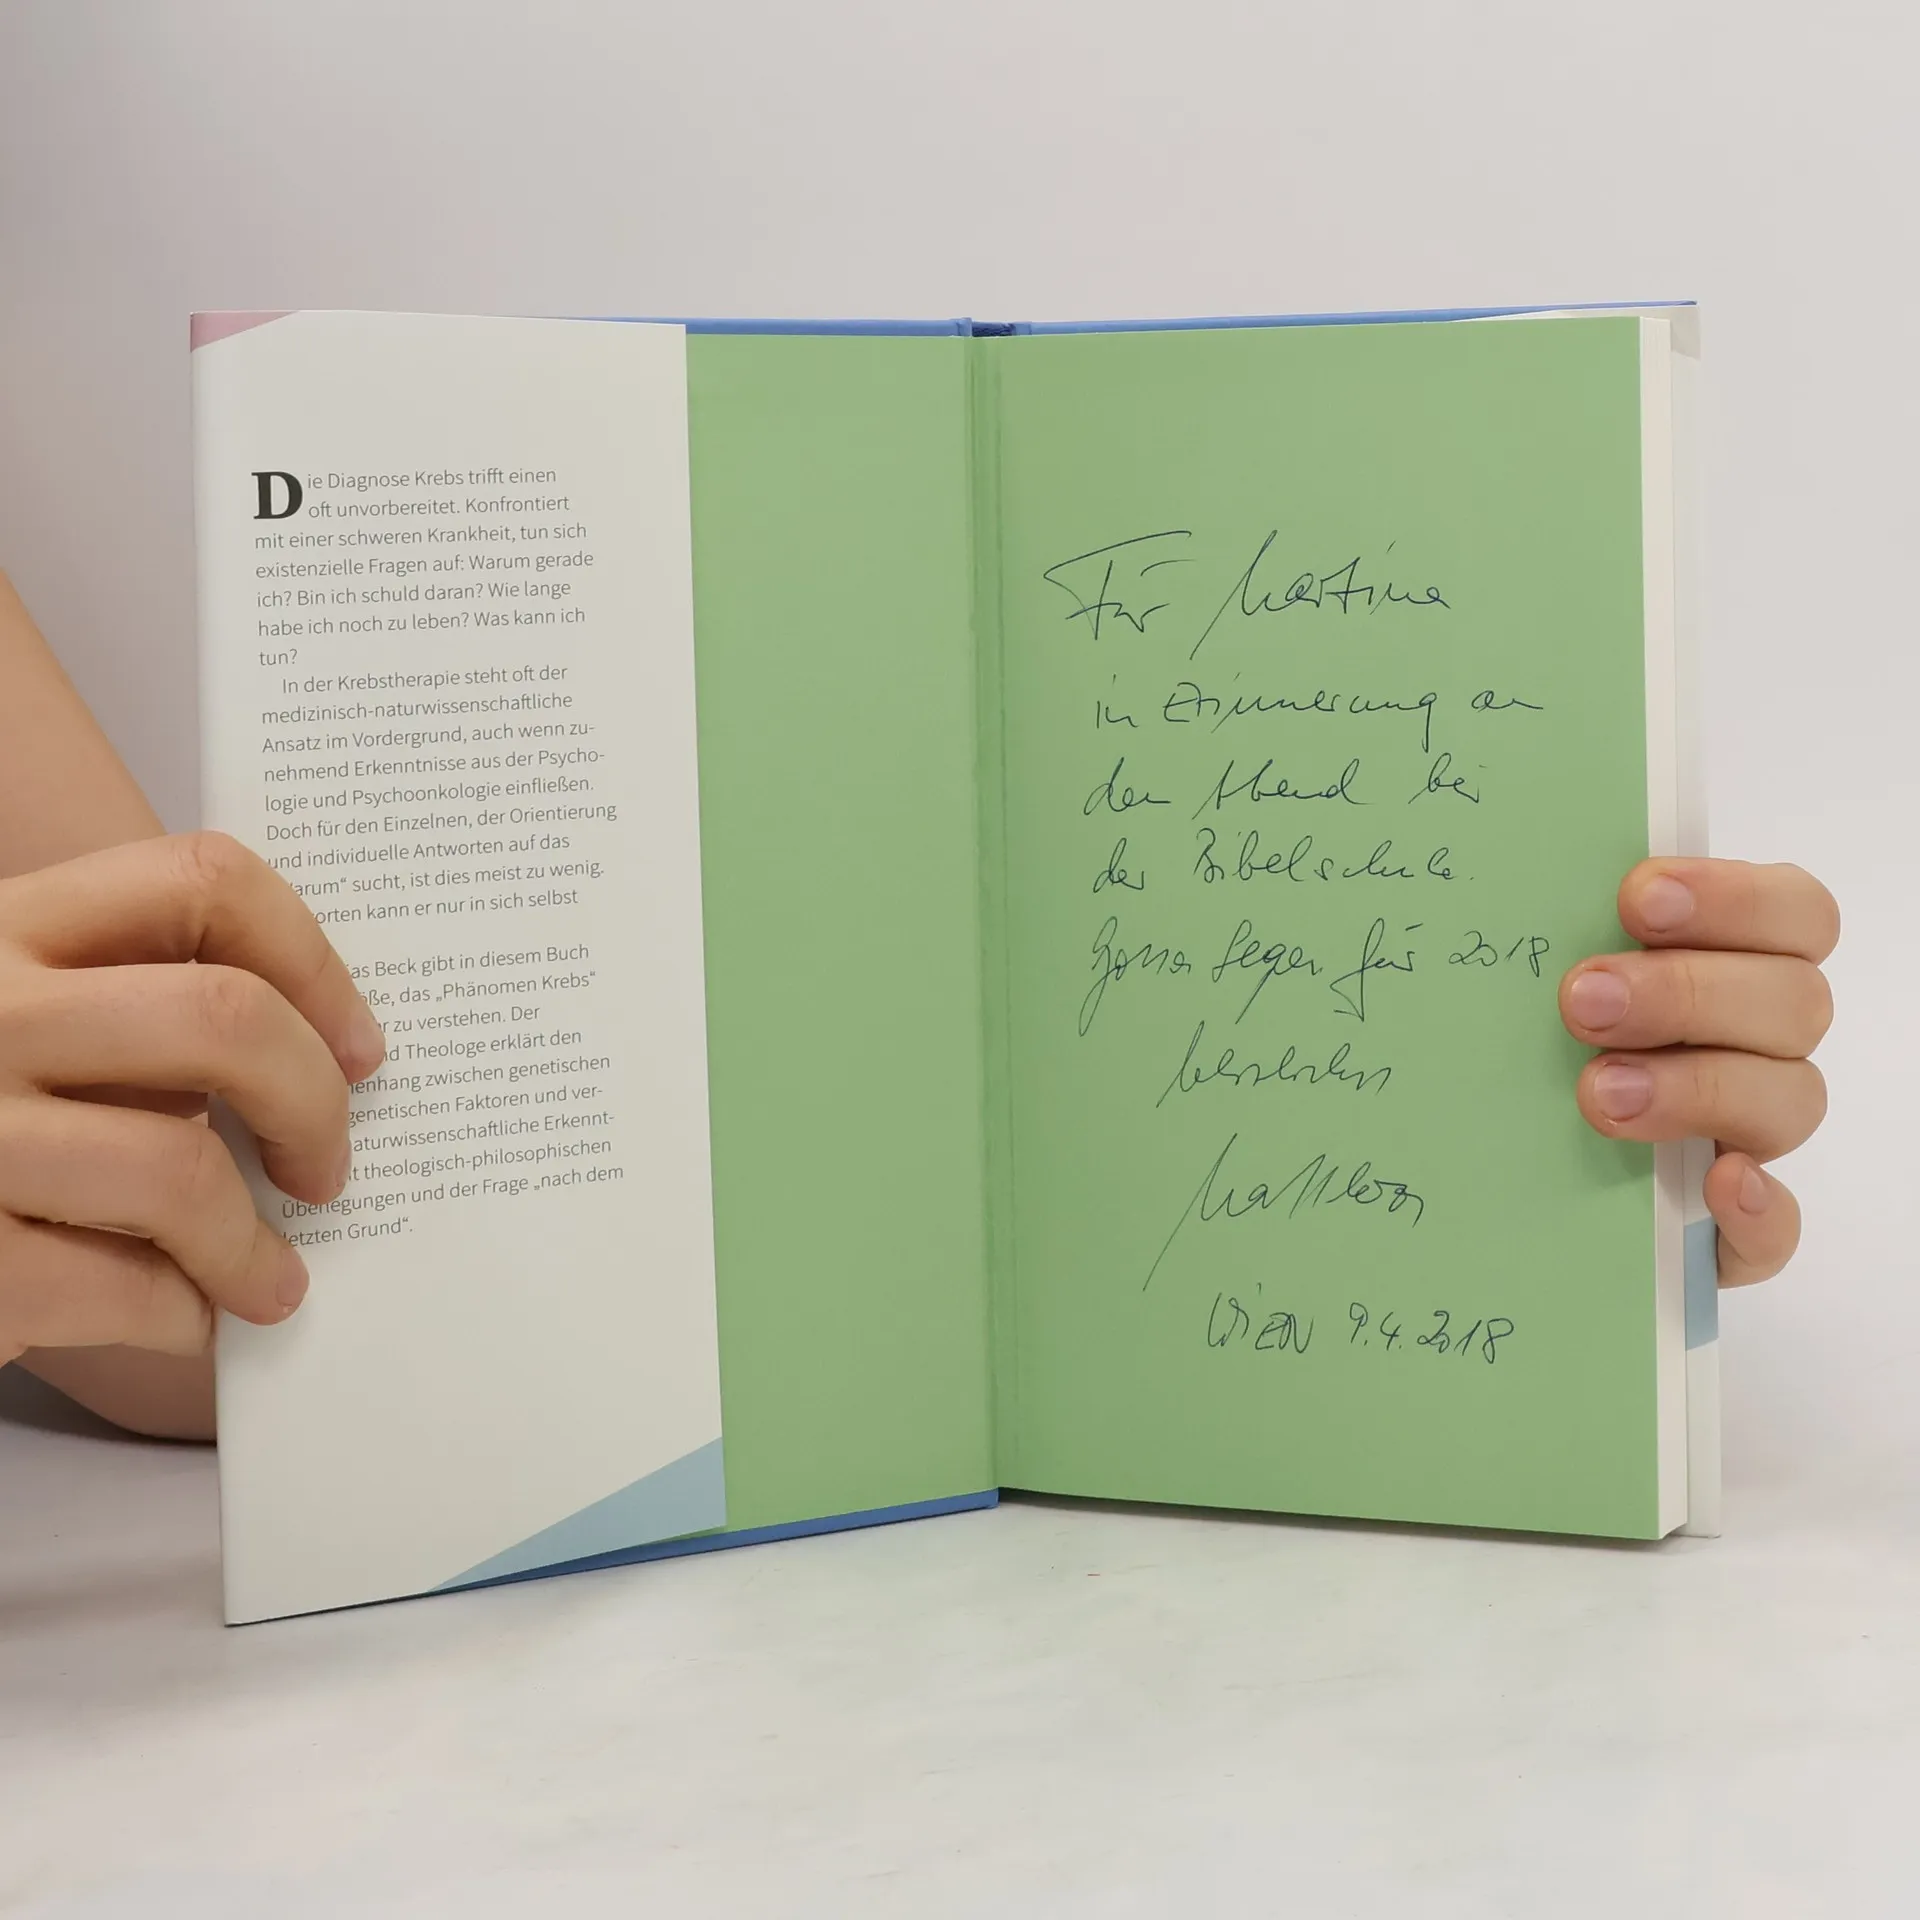 Die Diagnose Krebs trifft einen
oft unvorbereitet. Konfrontiert
mit einer schweren Krankheit, tun sich
existenzielle Fragen auf: Warum gerade
ich? Bin ich schuld daran? Wie lange
habe ich noch zu leben? Was kann ich
tun?
In der Krebstherapie steht oft der
medizinisch-naturwissenschaftliche
Ansatz im Vordergrund, auch wenn zu-
nehmend Erkenntnisse aus der Psycho-
logie und Psychoonkologie einfließen.
Doch für den Einzelnen, der Orientierung
und individuelle Antworten auf das
arum“ sucht, ist dies meist zu wenig.
orten kann er nur in sich selbst
as Beck gibt in diesem Buch
öße, das „Phänomen Krebs“
r zu verstehen. Der
nd Theologe erklärt den
enhang zwischen genetischen
genetischen Faktoren und ver-
aturwissenschaftliche Erkennt-
it theologisch-philosophischen
Überlegungen und der Frage „nach dem
letzten Grund“.
Für Martina
in Erinnerung an
den Abend bei
der Bibelschule.
Gottes Segen für 2018
WIEN 9.4.2018